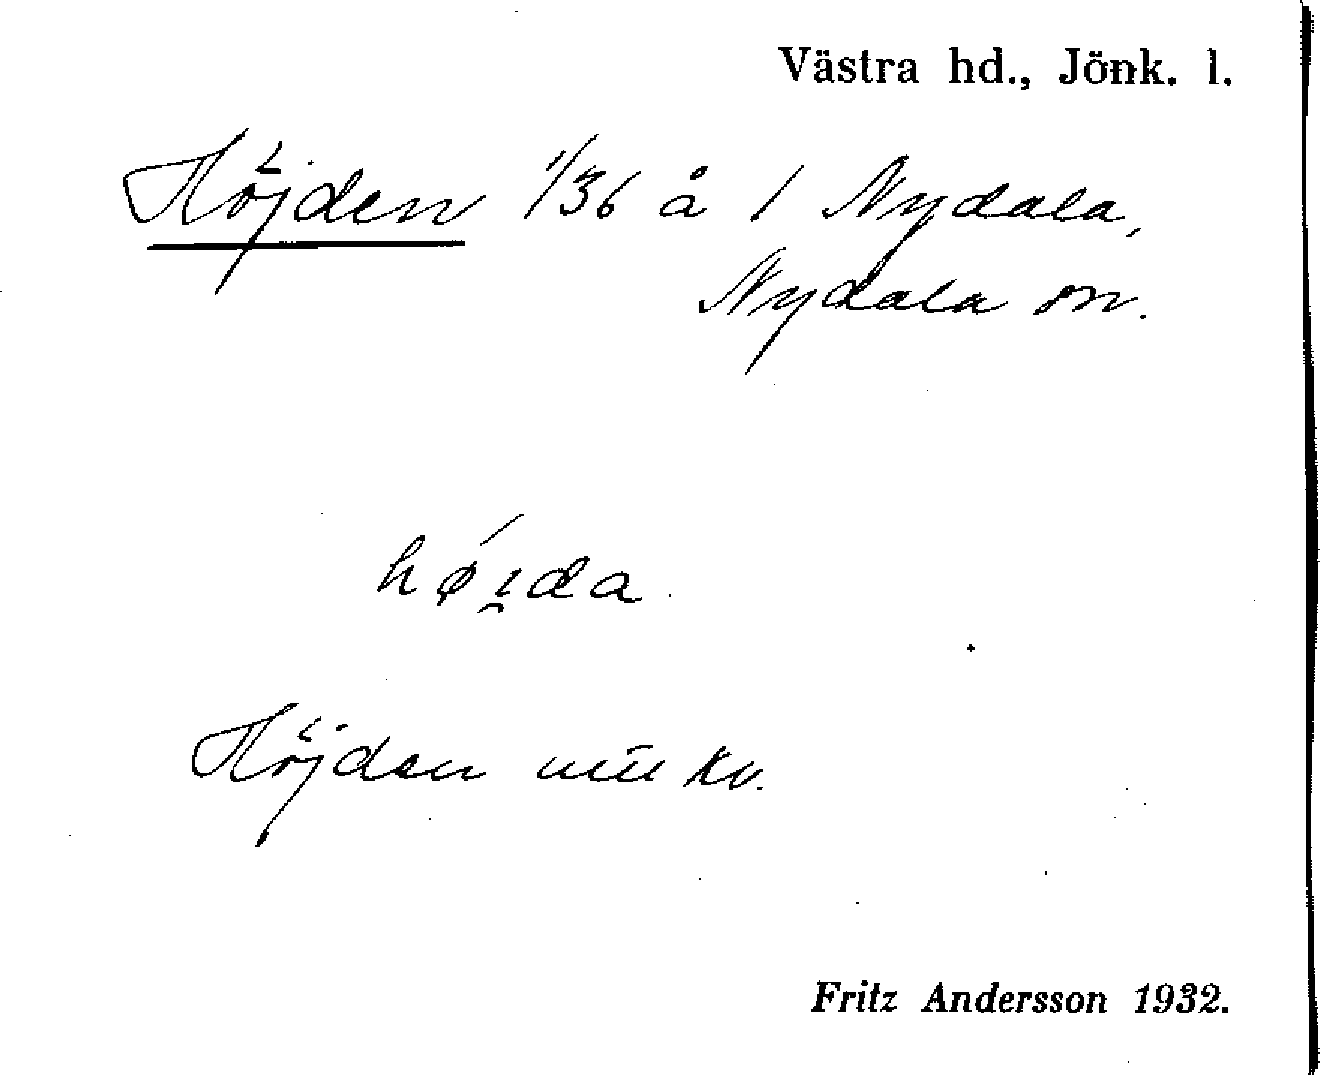 Västra hd., Jönk. l.
Höjden 1/36 å 1 Nydala,
Nydala sn.
hø´i̯da
Höjden kv.
Fritz Andersson 1932.